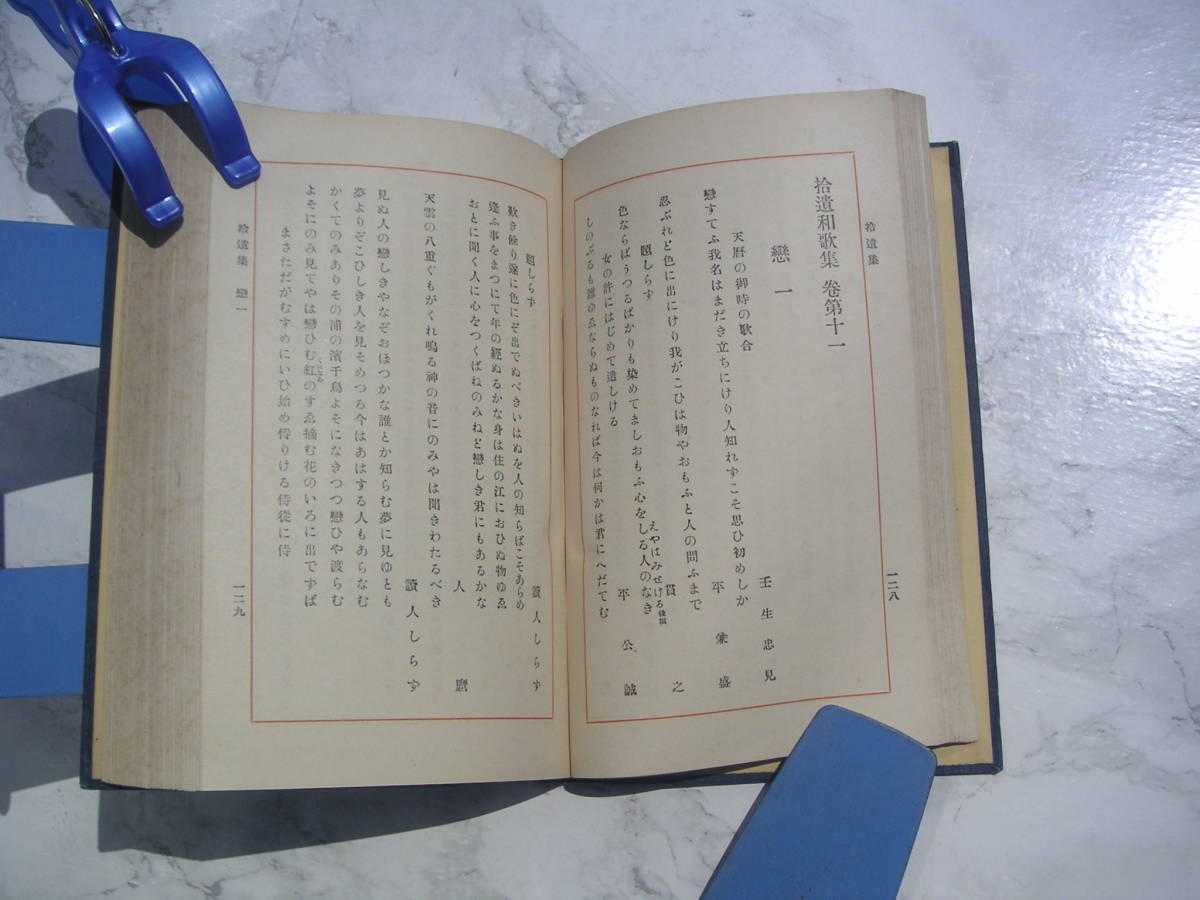 拾遺集
一二八
拾遺和歌集 卷第十一
戀一
天曆の御時の歌合
壬生忠見
戀すてふ我名はまだき立ちにけり人知れずこそ思ひ初めしか
平兼盛
忍ぶれど色に出にけり我がこひは物やおもふと人の問ふまで
題しらず
貫之
えやはみせける
色ならばうつるばかりも染めてましおもふ心をしる人のなき
女の許にはじめて遣しける
平公誠
しのぶるも誰ゆゑならぬものなれば今は何かは君にへだてむ
題しらず
讀人しらず
歎き餘り遂に色にぞ出でぬべきいはぬを人の知らばこそあらめ
逢ふ事をまつにて年の經ぬるかな身は住の江におひぬ物ゆゑ
おとに聞く人に心をつくばねのみねど戀しき君にもあるかな
人麿
天雲の八重ぐもがくれ鳴る神の音にのみやは聞きわたるべき
讀人しらず
見ぬ人の戀しきやなぞおほつかな誰とか知らむ夢に見ゆとも
夢よりぞこひしき人を見そめつる今はあはする人もあらなむ
かくてのみありその浦の濱千鳥よそになきつつ戀ひや渡らむ
よそにのみ見てやは戀ひむ紅のすゑ摘む花のいろに出でずば
まさただがむすめにいひ始め侍りける侍從に侍
拾遺集 戀一
一二九